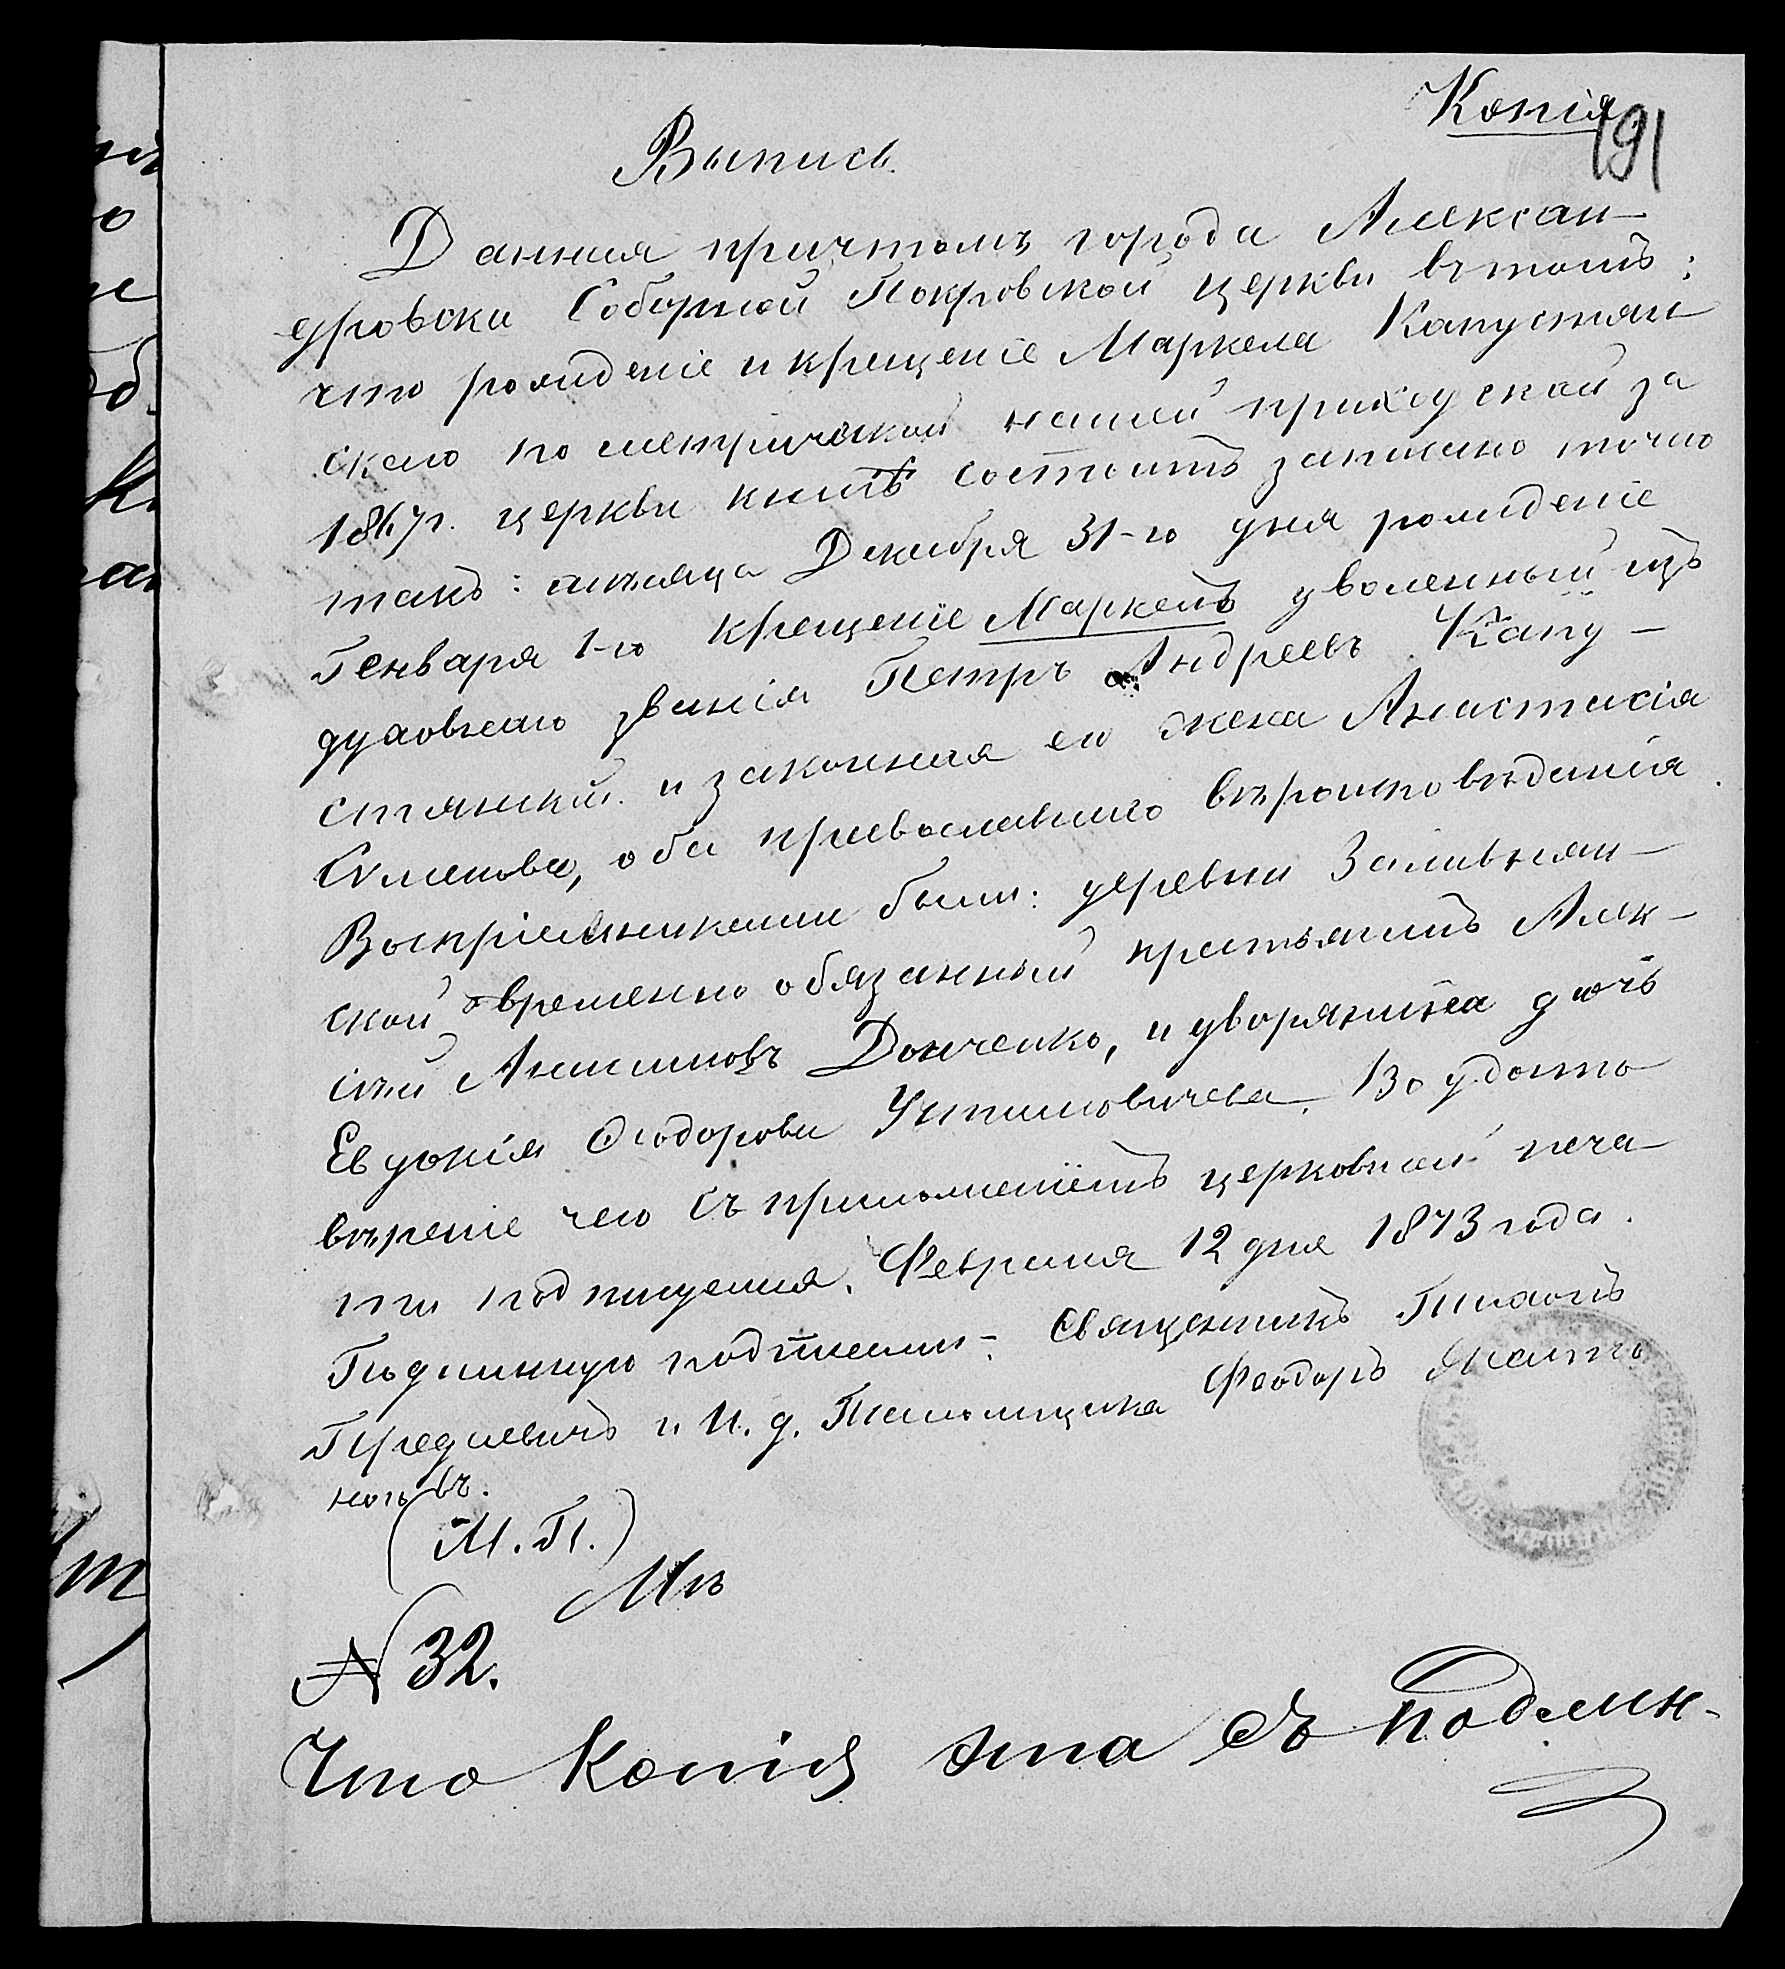 Копія
191
Выпись.
Данная причтомъ города Алексан-
дровска Соборной Покровской церкви въ томъ:
что рожденіе и крещеніе Маркела Капустян
скаго по метрической нашей приходской за
1867г. церкви книгѣ состоитъ записано точно
такъ: мѣсяца Декабря 31-го дня рожденіе
Генваря 1-го крещеніе Маркелъ уволенный изъ
духовнаго званія Петръ Андреевъ Капу-
стянскій и законная его жена Анастасія
Симонова, оба православнаго вѣроисповѣданія.
Воспріемниками были: деревни Заливнян-
ской временно обязанный крестьянинъ Алек-
сѣй Анисимовъ Донченко, и дворянина дочь
Евдокія Ѳеодорова Устимовичева. Во удосто-
вѣреніе чего съ приложеніемъ церковной печа-
ти подпишемся. Февраля 12 дня 1873 года.
Подлинную подписали: Священникъ Тихонъ
Передіевичъ и И. д. Псаломщика Феодоръ
новъ.
(М.П.)
Мп
№ 32.
Что копія эта съ подлин-